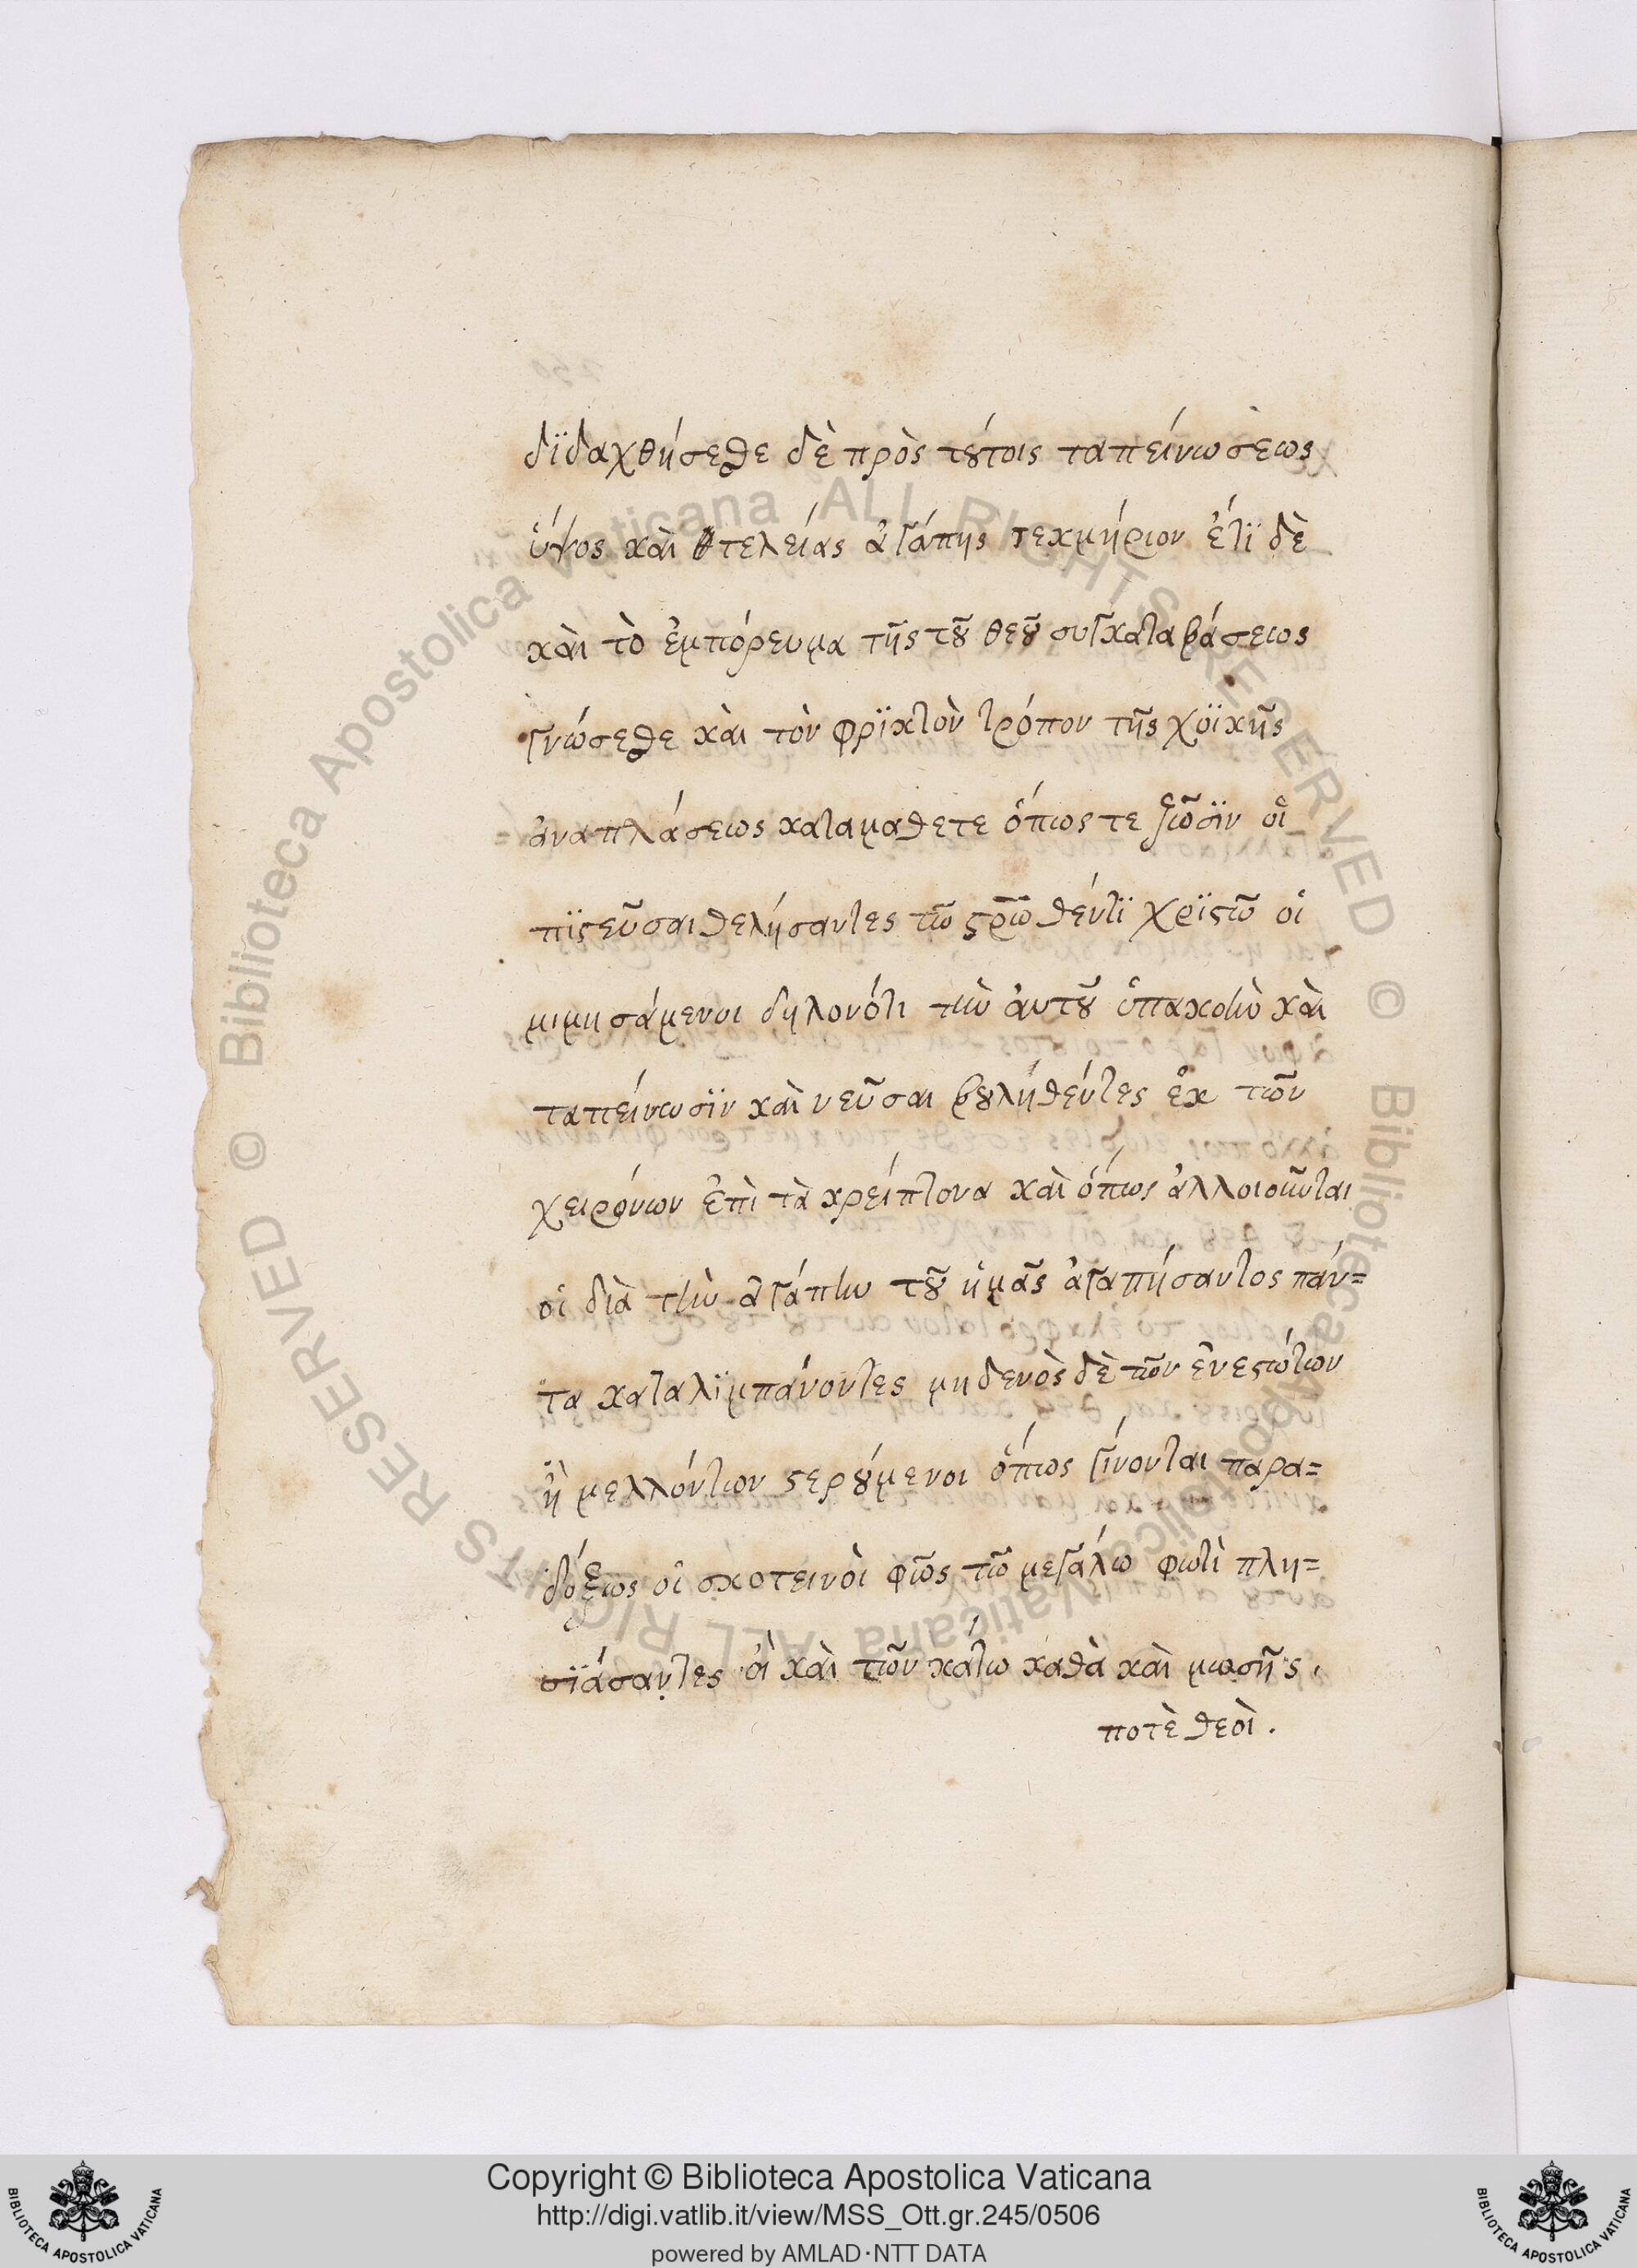 διδαχθήσεσθε δὲ πρὸς τούτοις ταπεινώσεως
ὕψος καὶ τελείας ἀγάπης τεκμήριον ἔτϊ δὲ
καὶ τὸ ἐμπόρευμα τῆς τοῦ θεοῦ συγκαταβάσεως
γνώσεσθε καὶ τὸν φρϊκτὸν τρόπον τῆς χοϊκῆς
ἀναπλάσεως καταμαθετε ὅπως τε ζῶσϊν οἱ
πϊστεῦσαι θελήσαντες τῶ στ̅ρ̅ω̅θέντϊ χρϊστῶ οἱ
μιμησάμενοι δηλονότι τὴν ἀυτοῦ ὑπακοὴν καὶ
ταπείνωσϊν καὶ νεῦσαι βουληθέντες ἐκ τῶν
χειρόνων ἐπὶ τὰ κρείττονα καὶ ὅπως ἀλλοιοῦνται
οἱ διὰ τὴν ἀγάπην τοῦ ἡμᾶς ἀγαπήσαντος πάν=
τα καταλϊμπάνοντες μηδενὸς δὲ τῶν ἐνεστώτων
ἢ μελλόντων στερούμενοι ὅπως γίνονται παρα=
δόξως οἱ σκοτεινοὶ φῶς τῶ μεγάλω φωτὶ πλη=
σϊάσαντες οἱ καὶ τῶν κάτω καθὰ καὶ μωσῆς,
ποτὲ θεοὶ.
Copyright © Biblioteca Apostolica Vaticana
http://digi.vatlib.it/view/MSS_Ott.gr.245/0506
powered by AMLAD·NTT DATA
BIBLIOTECA APOSTOLICA VATICANA
BIBLIOTECA APOSTOLICA VATICANA
© Biblioteca Apostolica Vaticana ALL RIGHTS RESERVED © Biblioteca Apostolica Vaticana ALL RIGHTS RESERVED